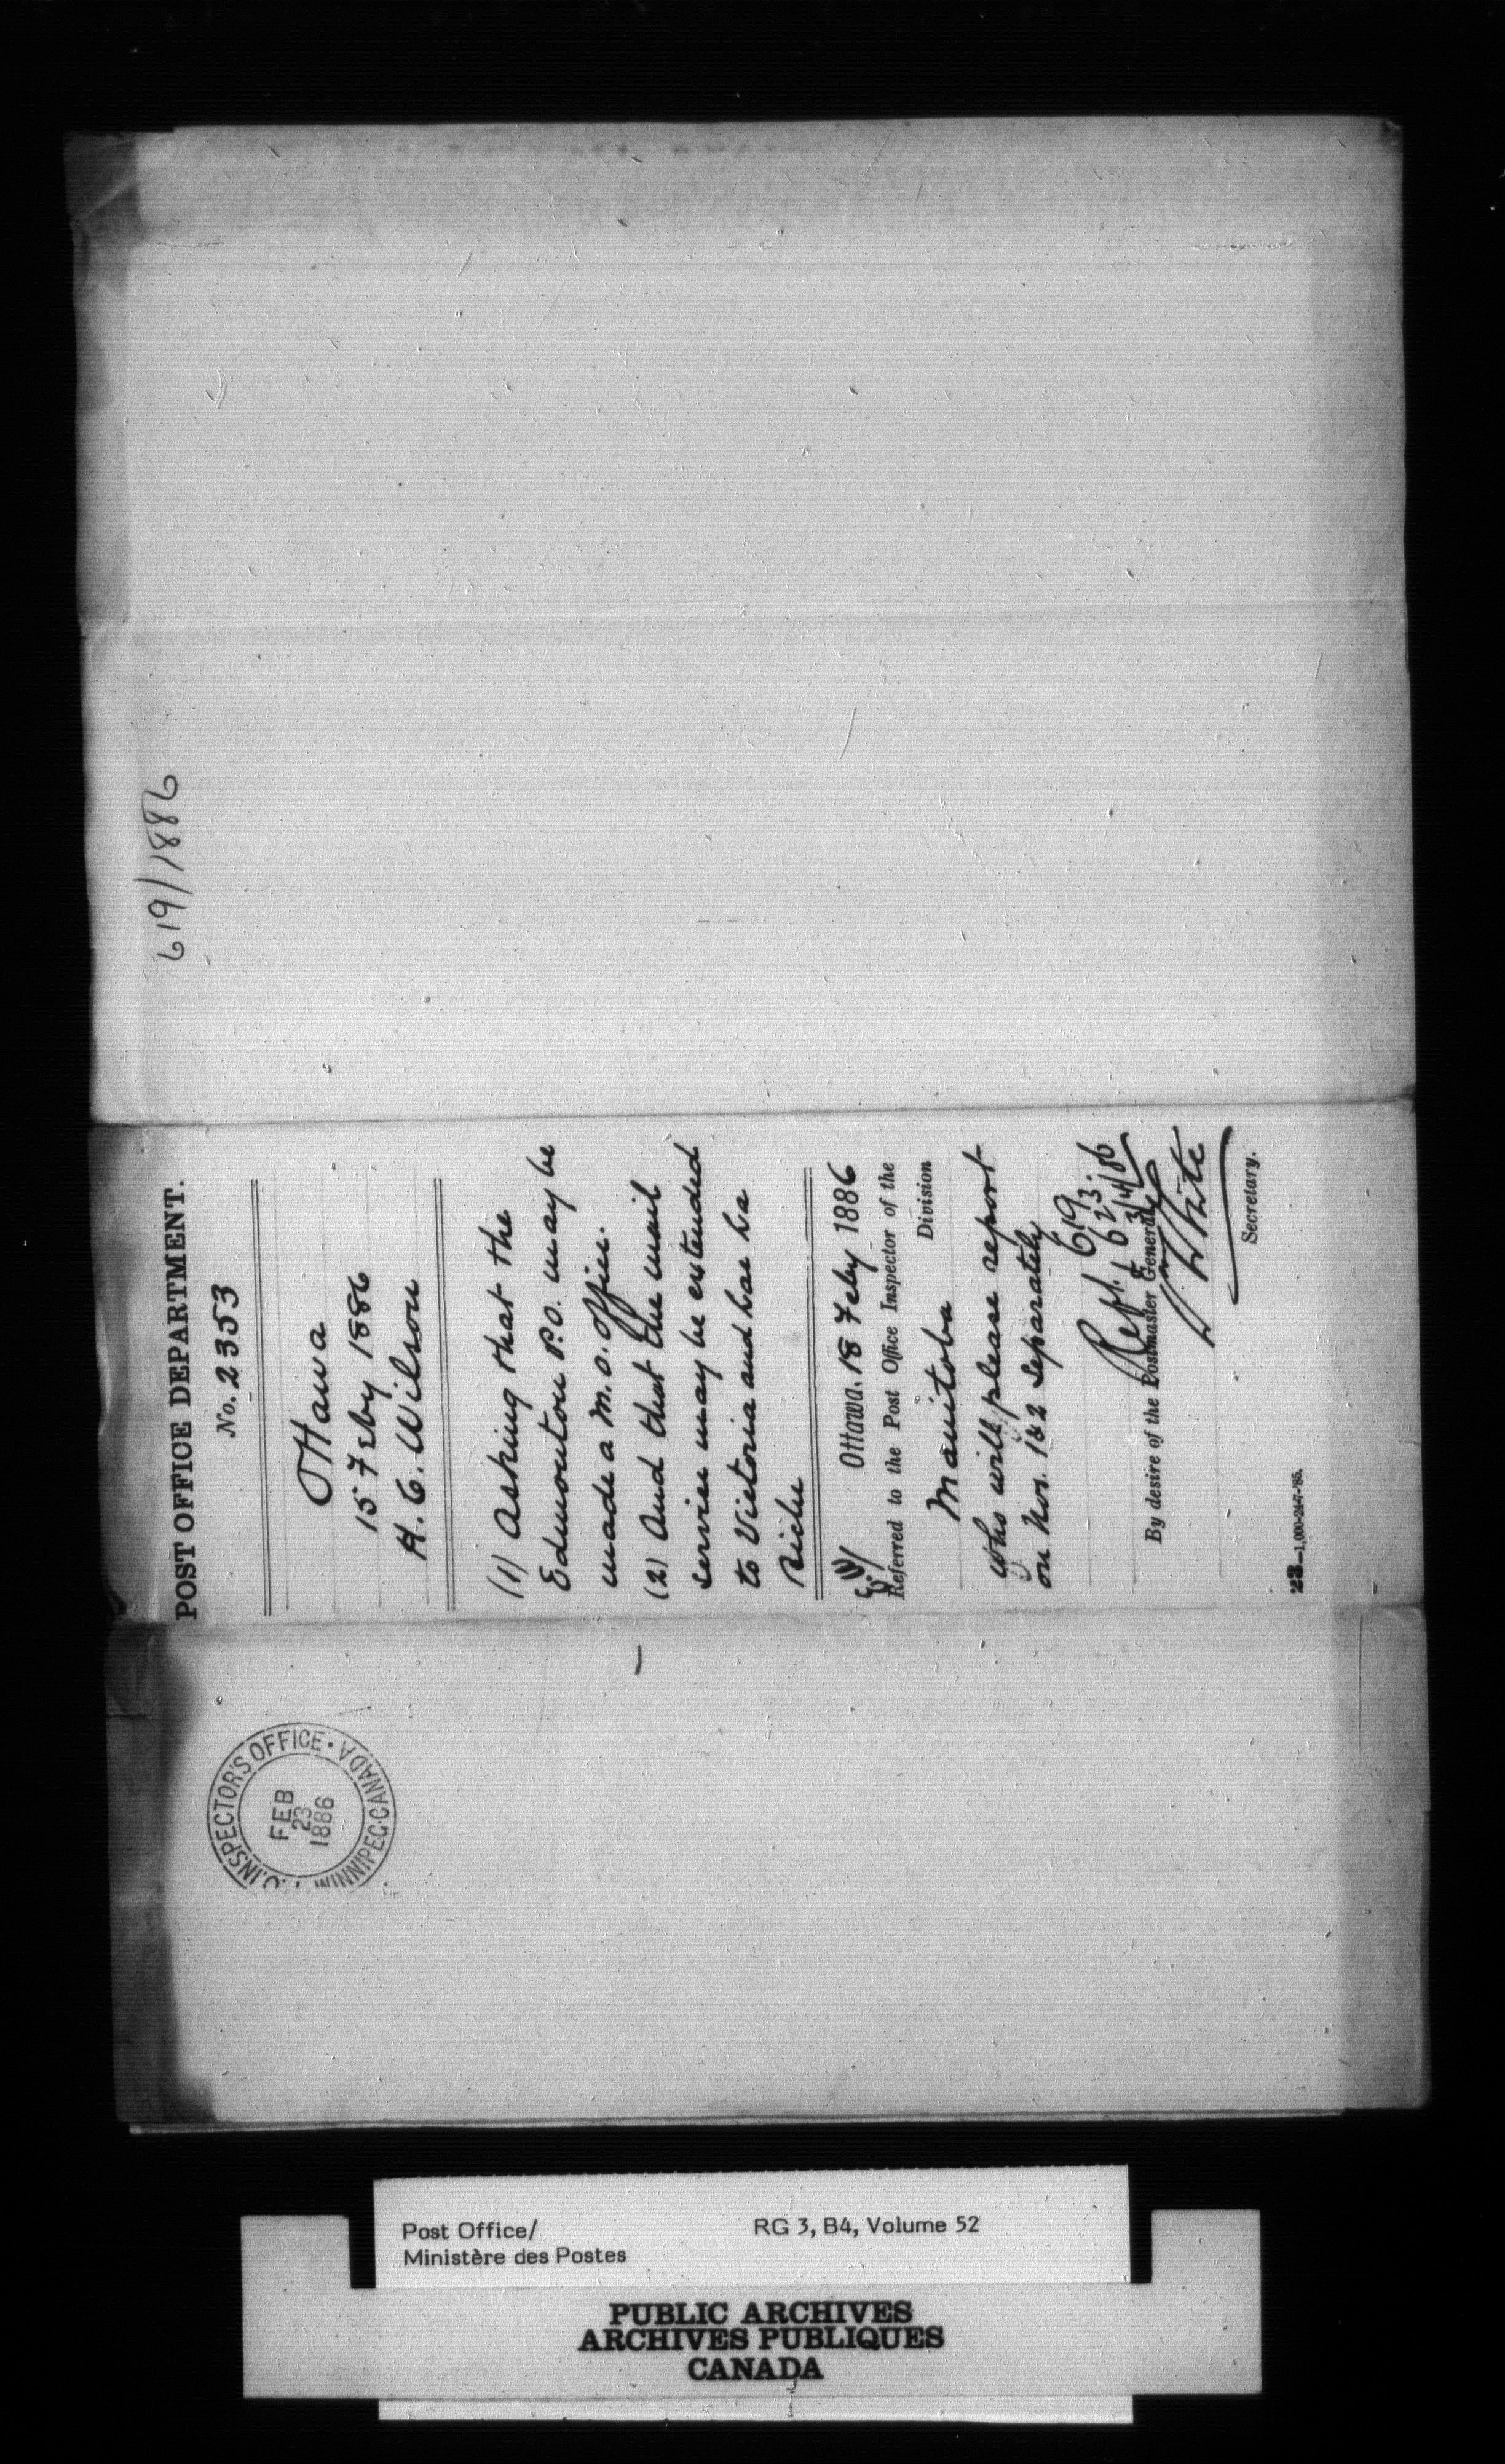 619/1886
POST OFFICE DEPARTMENT.
No. 2353
Ottawa
15 Feby 1886
H. C. Wilson
(1) Asking that the
Edmonton P.O. may be
made a M.O. Office.
(2) And that the mail
service may be extended
to Victoria and Lac La
Biche
Ottawa. 18 Feby 1886
Referred to the Post Office Inspector of the
Manitoba Division
who will please report
on Nos. 1 & 2 separately
Rept. 619.
623.
3/4/86
By desire of the Postmaster General,
White
Secretary.
23—1,000-24-7-'85.
P.O. INSPECTOR'S OFFICE · WINNIPEG · CANADA
FEB
23
1886
Post Office/ RG 3, B4, Volume 52
Ministère des Postes
PUBLIC ARCHIVES
ARCHIVES PUBLIQUES
CANADA